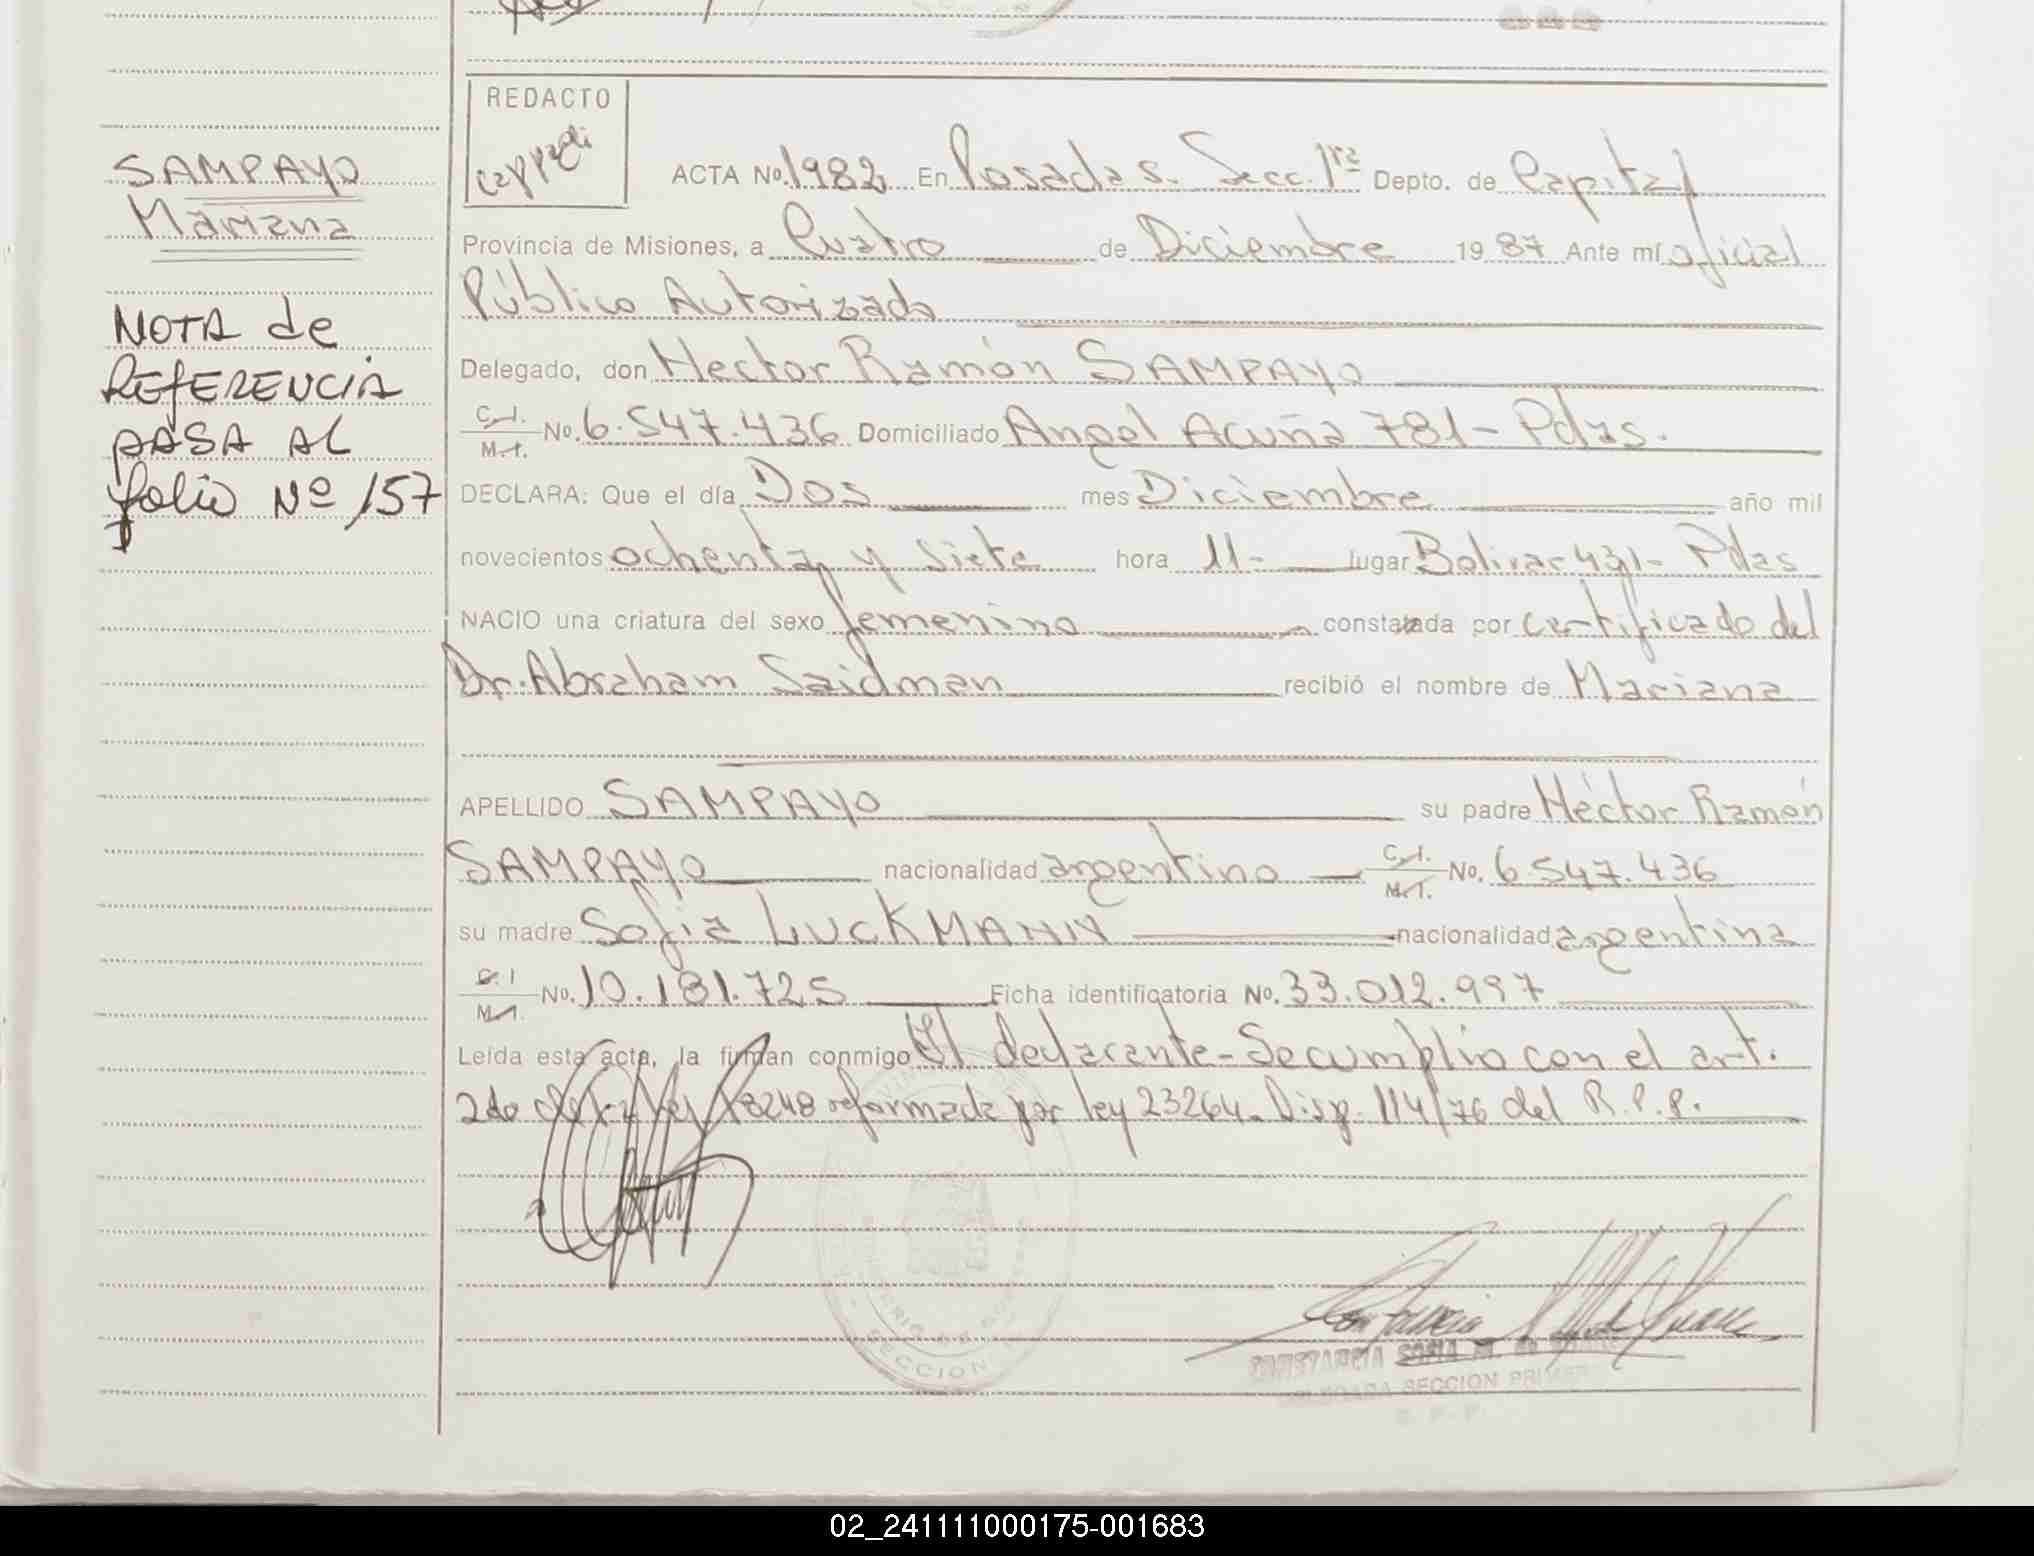 SAMPAYO
Mariana
NOTA de
REFERENCIA
PASA AL
folio Nº 157
REDACTO
ACTA No. 1982 En Posadas. Secc. 1ra Depto. de Capital
Provincia de Misiones, a Cuatro de Diciembre 1987 Ante mí oficial
Público Autorizado
Delegado, don Hector Ramón SAMPAYO
C.I.
M.I. No. 6.547.436 Domiciliado Angel Acuña 781- Pdas.
DECLARA: Que el día Dos mes Diciembre año mil
novecientos ochenta y siete hora 11- lugar Bolivar 431- Pdas
NACIO una criatura del sexo femenino constatada por certificado del
Dr. Abraham Saidman recibió el nombre de Mariana
APELLIDO SAMPAYO su padre Héctor Ramón
SAMPAYO nacionalidad argentino C.I.
M.I. No. 6.547.436
su madre Sofia LUCKMANN nacionalidad argentina
C.I
M.I. No. 10.181.725 Ficha identificatoria No. 33.012.997
Leída esta acta, la firman conmigo El declarante- Se cumplio con el art.
2do de la ley 18248 reformada por ley 23264. Disp. 114/76 del R.P.P.
SECCION
CONSTANCIA SOFIA M. de
DELEGADA SECCION PRIMERA
R. P. P.
02_241111000175-001683